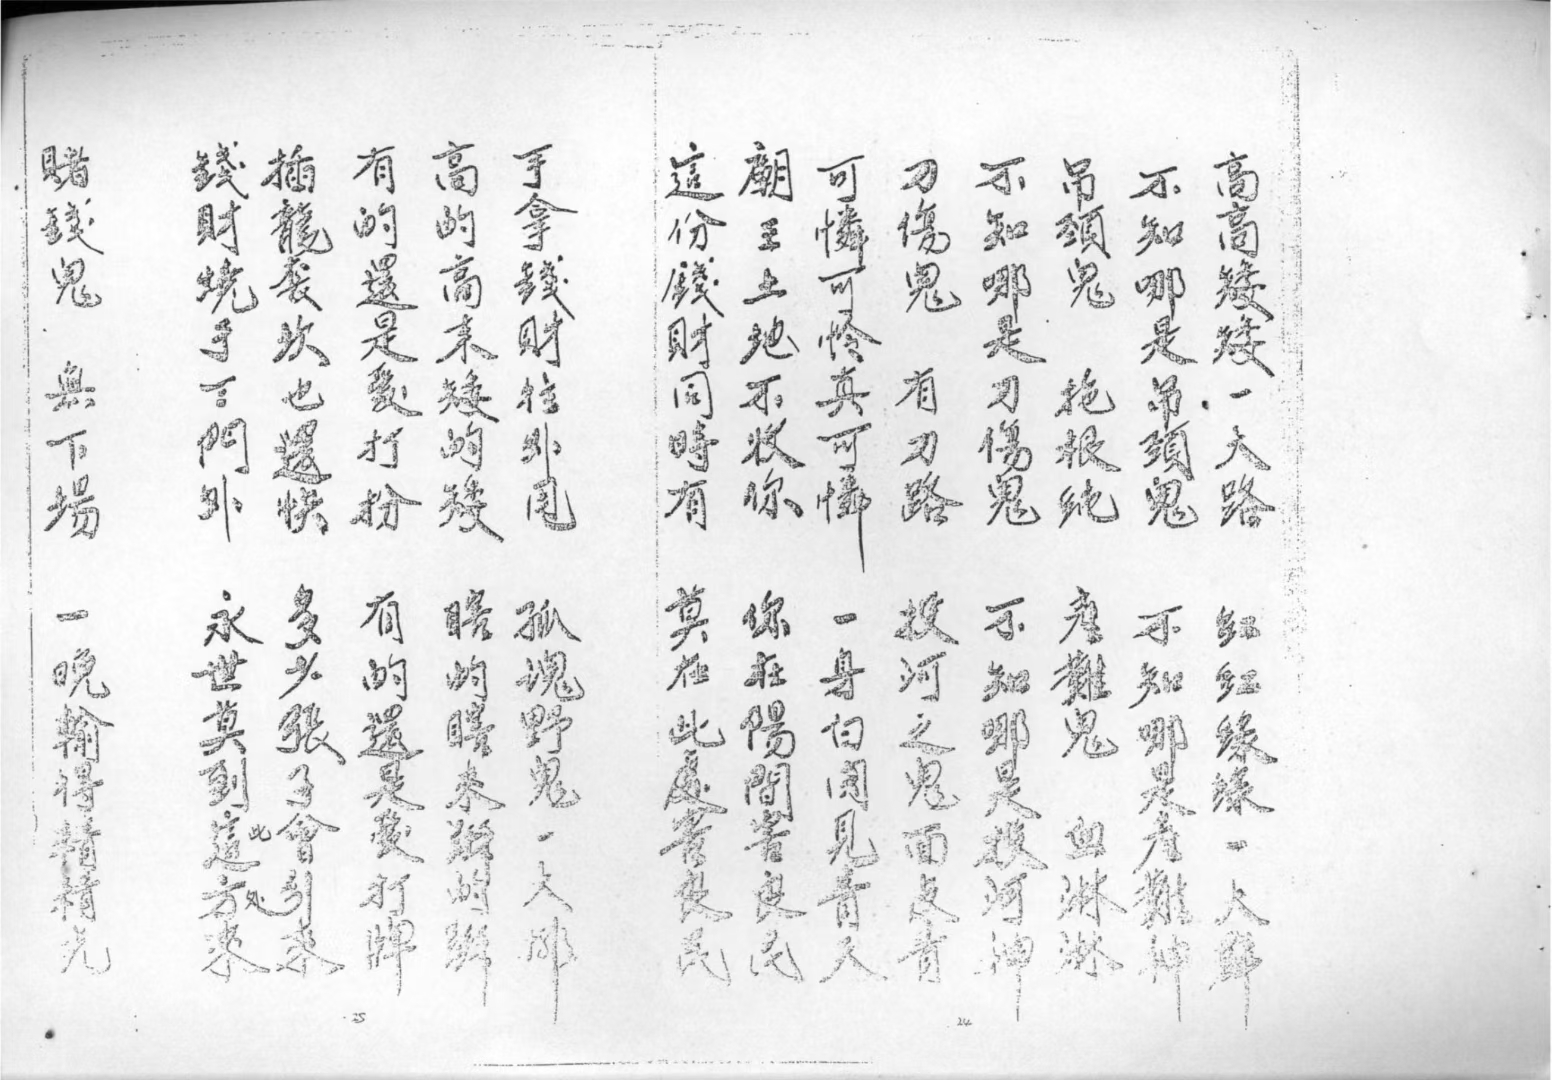 高高矮矮一大路 紅紅綠綠一大群
不知哪是吊頸鬼 不知哪是產難神
吊頸鬼 拖根繩 產難鬼 血淋淋
不知哪是刀傷鬼 不知哪是投河神
刀傷鬼 有刀路 投河之鬼面皮青
可憐可怜真可憐 一身白肉見青天
廟王土地不收你 你在陽間害良民
這份錢財同時有 莫在此處害良民
24
手拿錢財往外甩 孤魂野鬼一大群
高的高來矮的矮 瞎的瞎來跛的跛
有的還是愛打扮 有的還是愛打牌
插龍 坎也還快 多少張子會到來
錢財燒于下門外 永世莫到這方來
此處
25
賭錢鬼 無下場 一晚輸得精精光